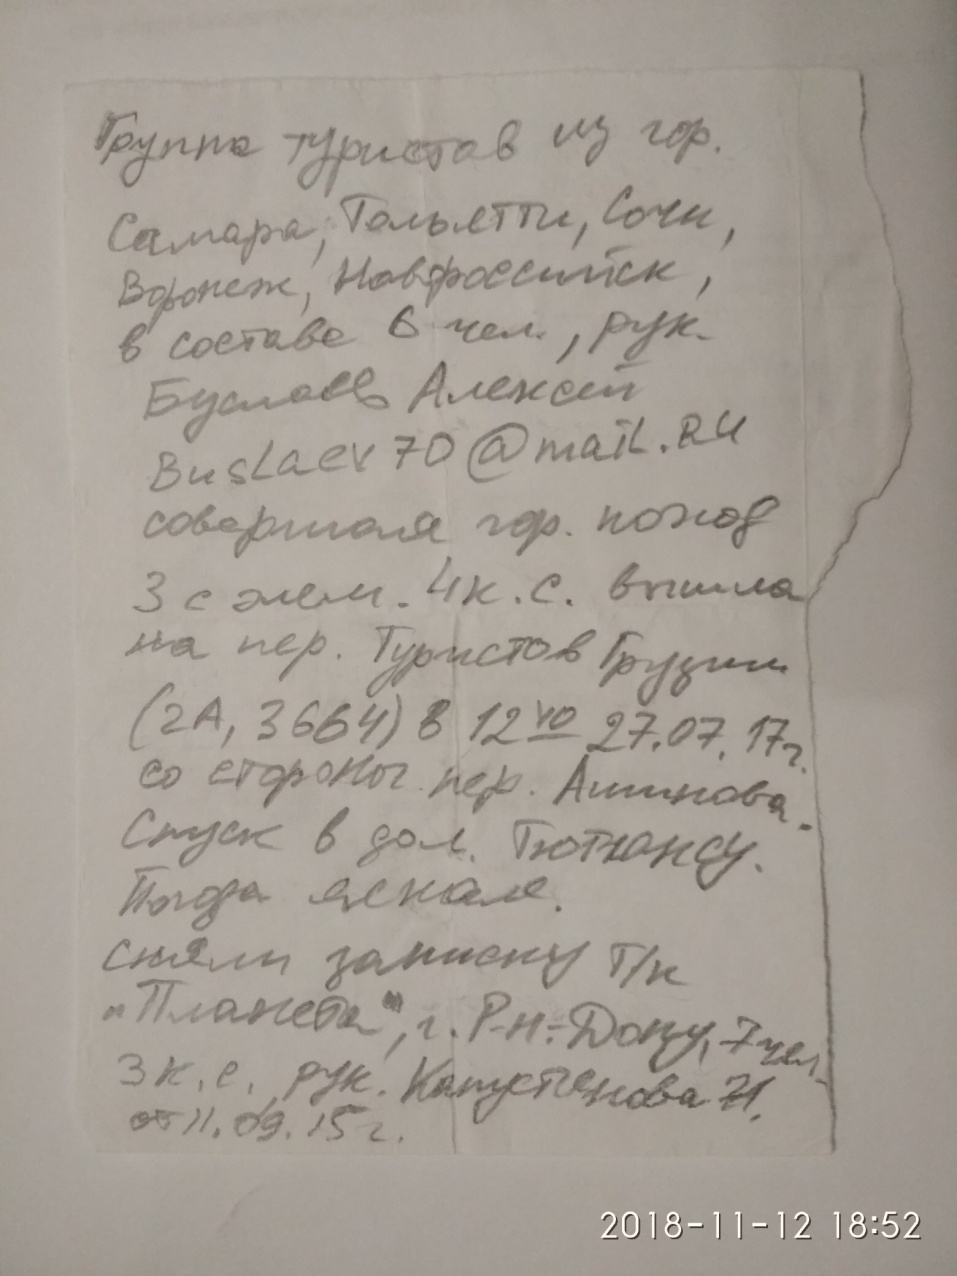 Группа туристов из гор.
Самара, Тольятти, Сочи,
Воронеж, Новороссийск,
в составе 6 чел., рук.
Буслаев Алексей
BusLaev70@maiL.RU
совершая гор. поход
3 с элем. 4 к.с. вышла
на пер. Туристов Грузии
(2А, 3664) в 12 40 27.07.17г.
со стороны пер. Ашинова.
Спуск в дол. Тютюнсу.
Погода ясная.
Сняли записку т/к
"Планета", г. Р-н-Дону, 7 чел.
3 к.с., рук. Капустенова Н.
от 11.09.15г.
2018-11-12 18:52